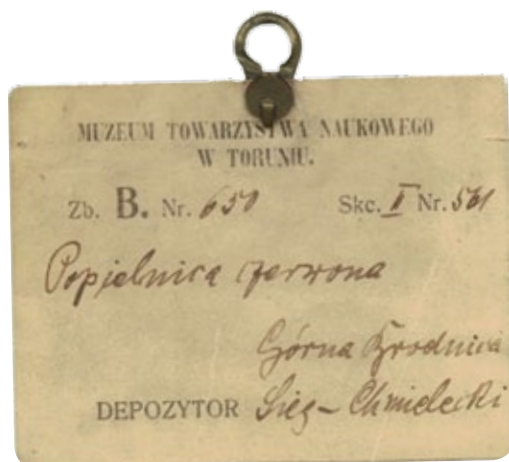 MUZEUM TOWARZYSTWA NAUKOWEGO
W TORUNIU.
Zb. B. Nr. 650 Skc. II Nr. 561
Popielnica czerwona
Górna Brodnica
DEPOZYTOR Sieg-Chmielecki